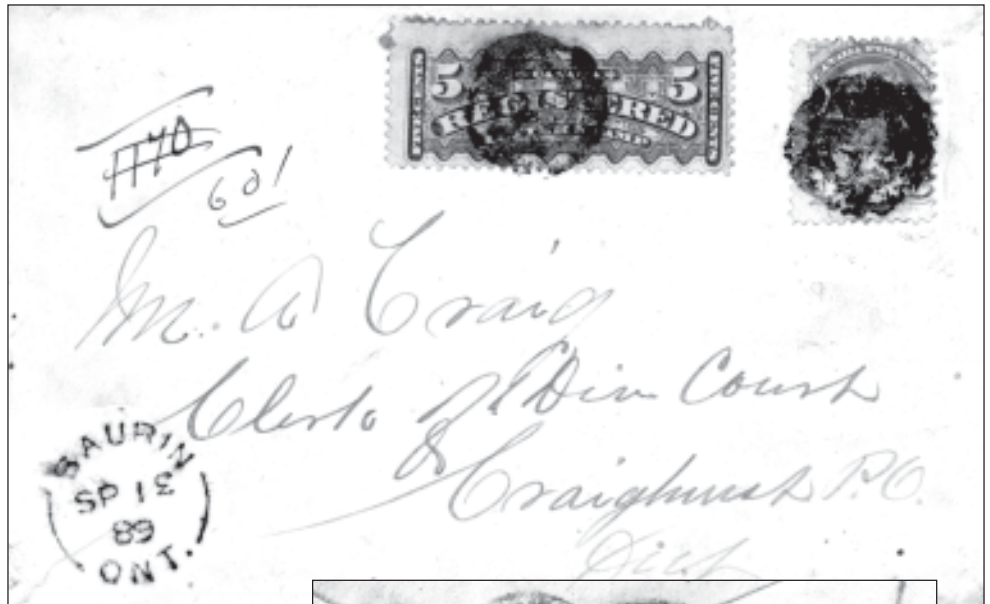 5 REGISTERED 5
1170
601
M. A Craig
Clerk Div Court
Craighurst P.O.
SAURIN
SP 13
89
ONT.